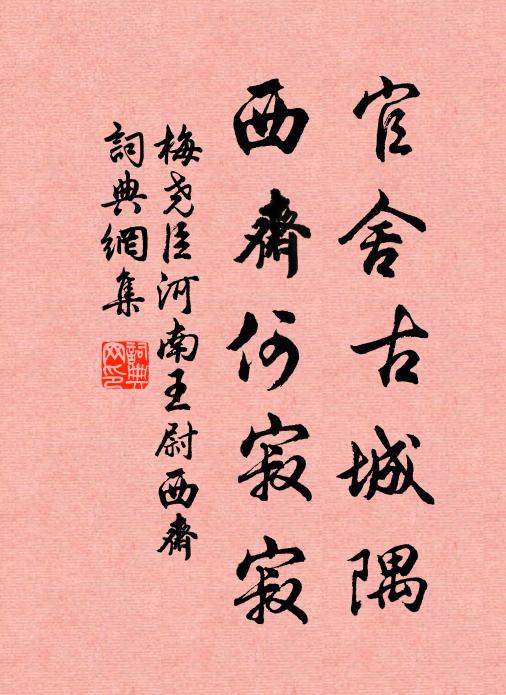 官舍古城隅
西齋何寂寂
梅堯臣河南王尉西齋
詞典網集
詞典网印